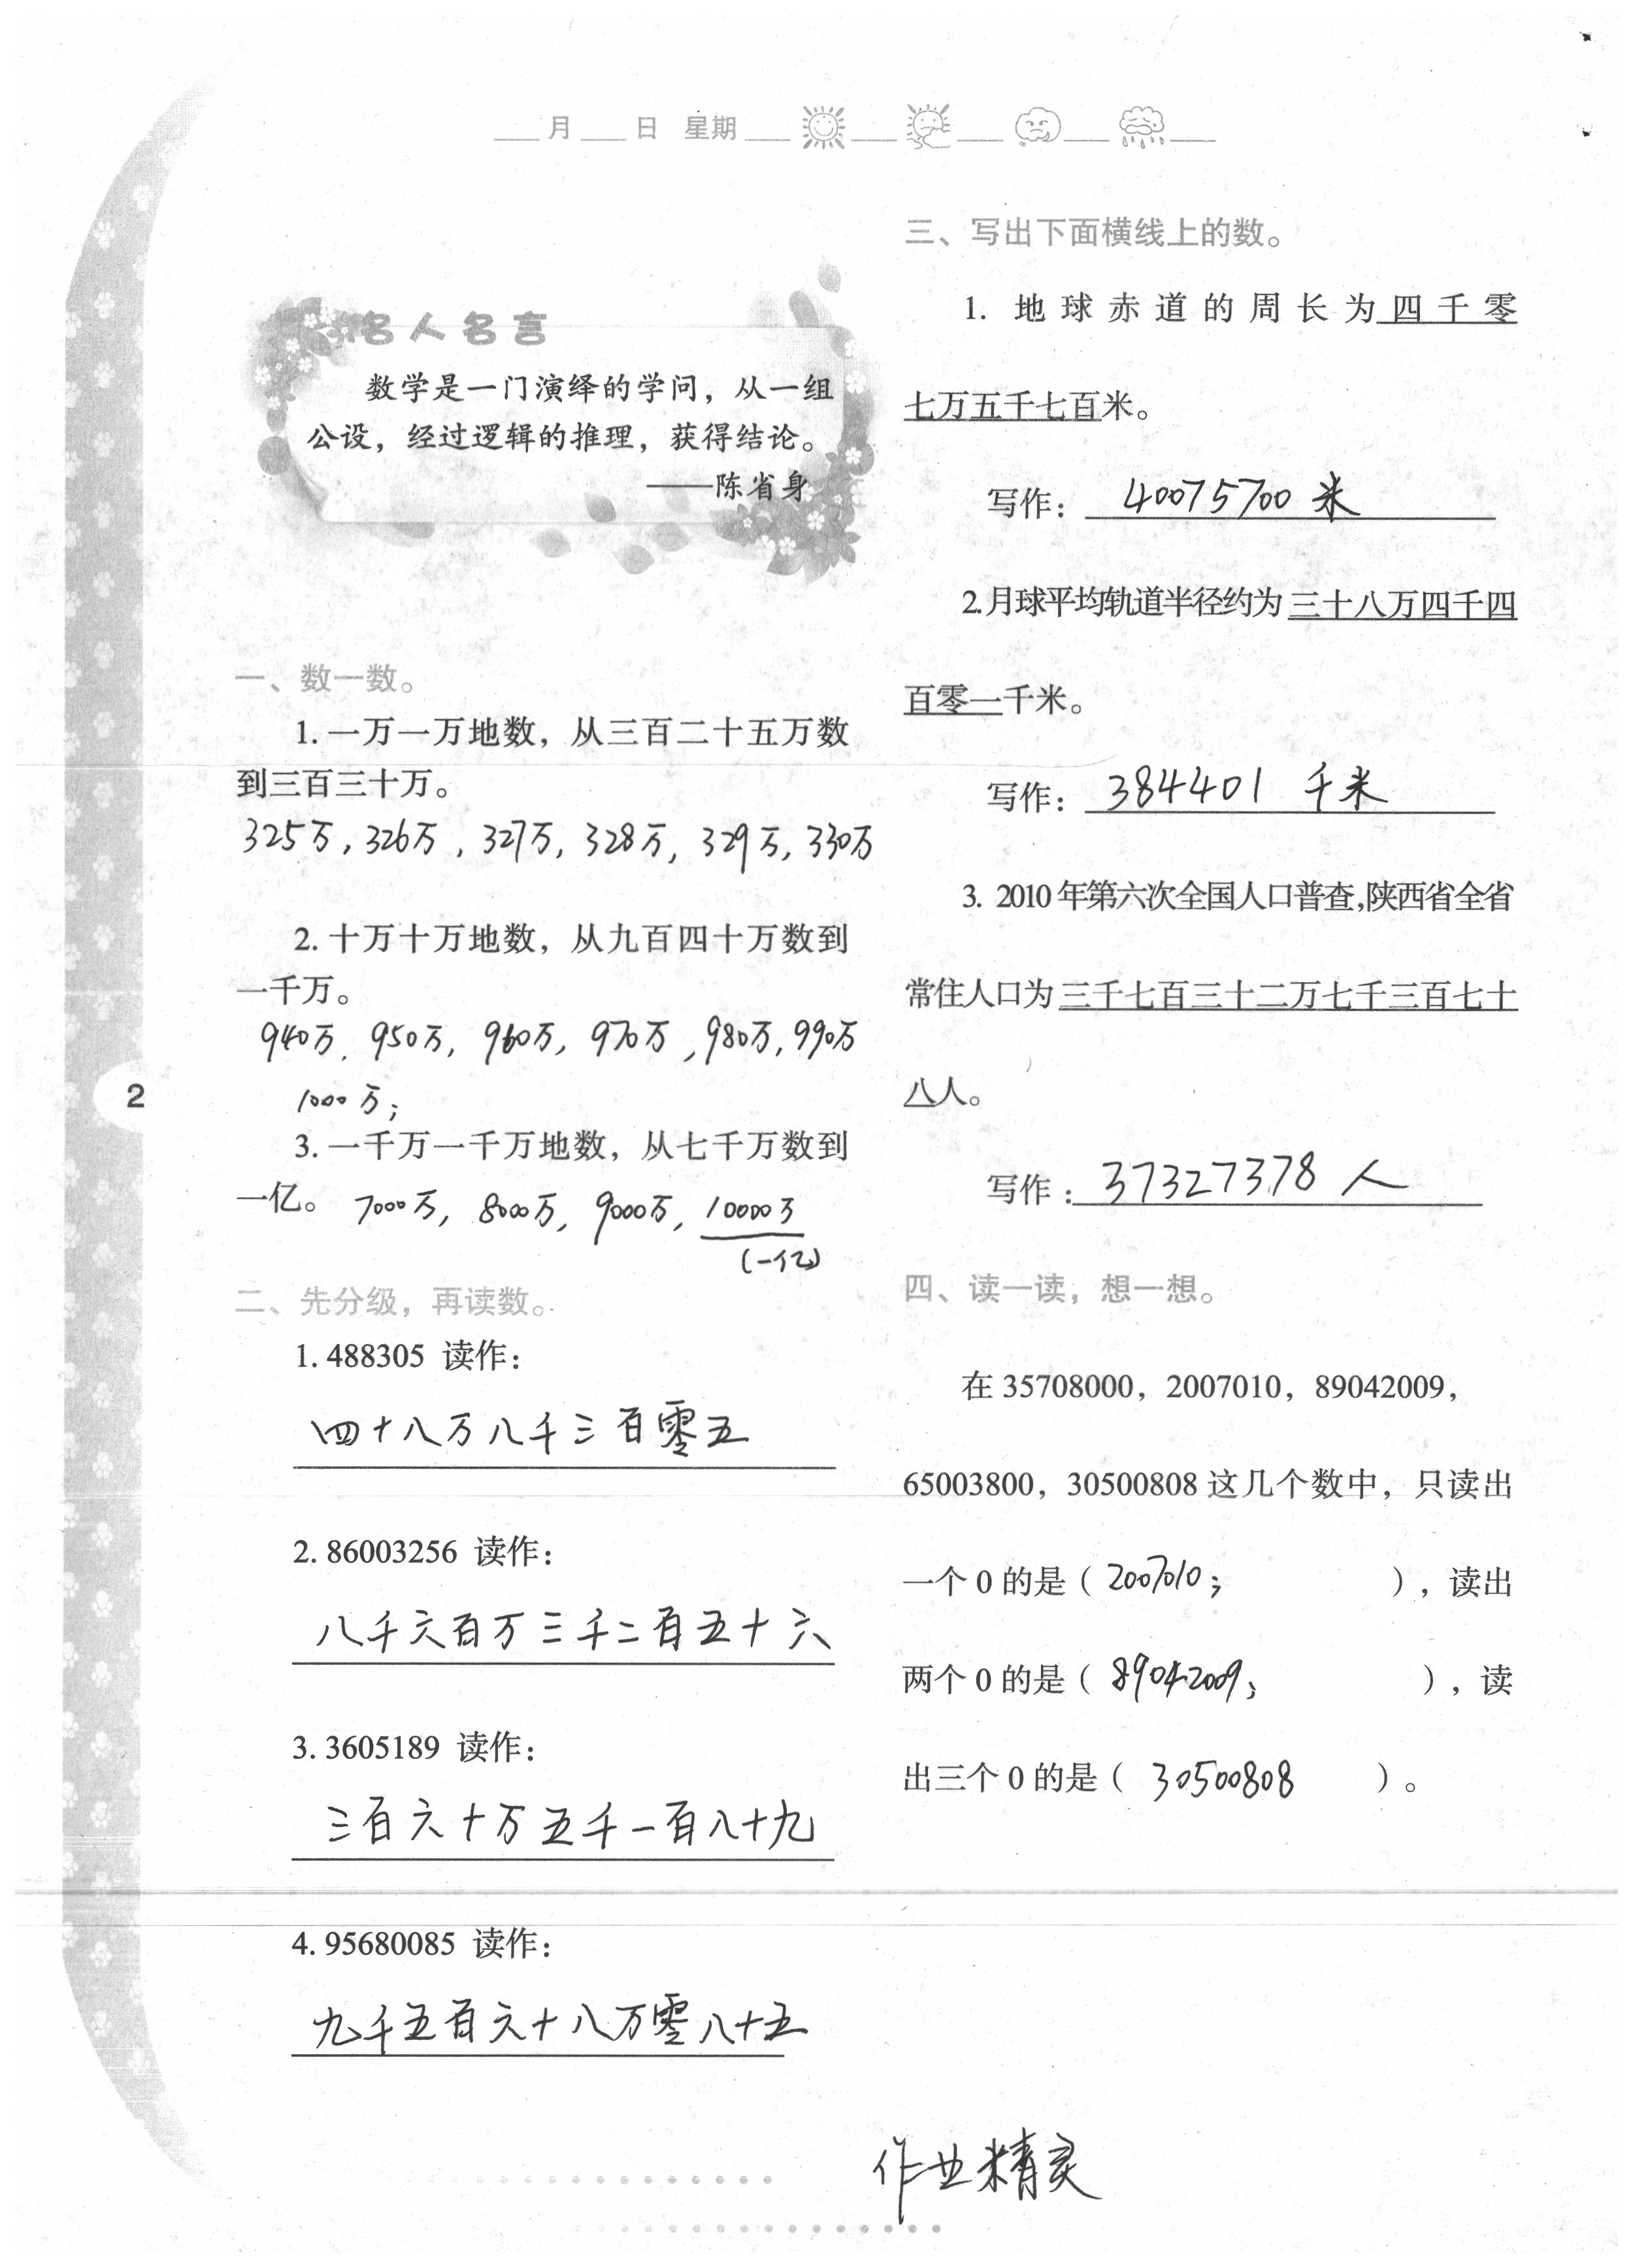 ___月___日 星期___ ___ ___ ___ ___
名人名言
数学是一门演绎的学问，从一组
公设，经过逻辑的推理，获得结论。
——陈省身
一、数一数。
1. 一万一万地数，从三百二十五万数
到三百三十万。
325万, 326万, 327万, 328万, 329万, 330万
2. 十万十万地数，从九百四十万数到
一千万。
940万, 950万, 960万, 970万, 980万, 990万
1000万;
3. 一千万一千万地数，从七千万数到
一亿。 7000万, 8000万, 9000万, 10000万
(一亿)
二、先分级，再读数。
1. 488305 读作：
四十八万八千三百零五
2. 86003256 读作：
八千六百万三千二百五十六
3. 3605189 读作：
三百六十万五千一百八十九
4. 95680085 读作：
九千五百六十八万零八十五
2
三、写出下面横线上的数。
1. 地球赤道的周长为四千零
七万五千七百米。
写作： 40075700 米
2. 月球平均轨道半径约为三十八万四千四
百零一千米。
写作： 384401 千米
3. 2010年第六次全国人口普查,陕西省全省
常住人口为三千七百三十二万七千三百七十
八人。
写作： 37327378 人
四、读一读，想一想。
在 35708000，2007010，89042009，
65003800，30500808 这几个数中，只读出
一个 0 的是（ 2007010; ），读出
两个 0 的是（ 89042009; ），读
出三个 0 的是（ 30500808 ）。
作业精灵